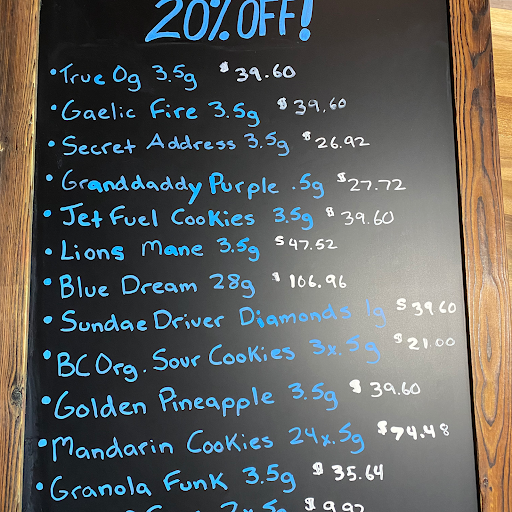 20% OFF!
• True Og 3.5g $39.60
• Gaelic Fire 3.5g $39.60
• Secret Address 3.5g $26.92
• Granddaddy Purple .5g $27.72
• Jet Fuel Cookies 3.5g $39.60
• Lions Mane 3.5g $47.52
• Blue Dream 28g $106.96
• Sundae Driver Diamonds 1g $39.60
• BC Org. Sour Cookies 3x.5g $21.00
• Golden Pineapple 3.5g $39.60
• Mandarin Cookies 24x.5g $74.48
• Granola Funk 3.5g $35.64
$9.92